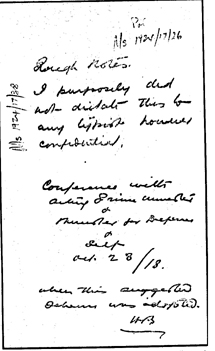 M/s 1924/17/26
M/s 1924/17/28
Rough Notes.
I purposely did
not dictate this to
any typist however
confidential.
Conference with
acting Prime Minister
&
Minister for Defence
&
Self
Oct. 28/18.
when this suggested
scheme was adopted.